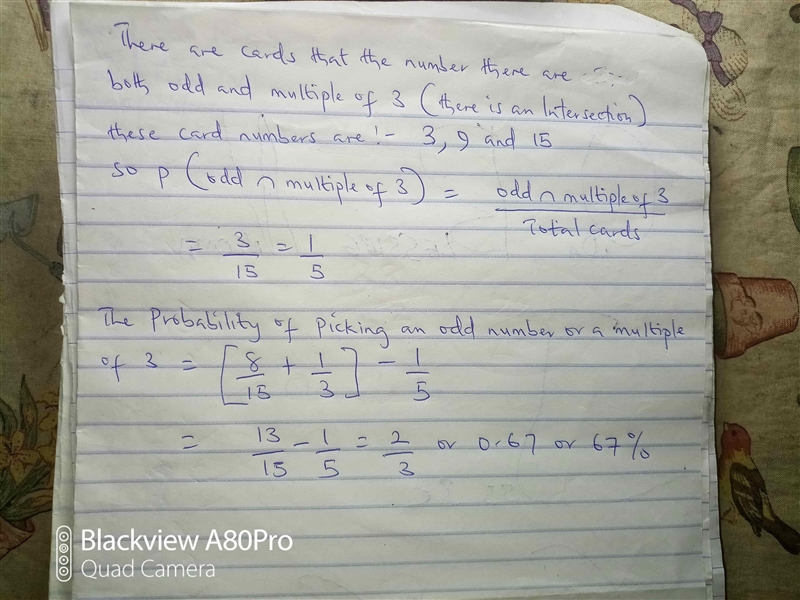 There are cards that the number there are
both odd and multiple of 3 (there is an Intersection)
these card numbers are :- 3, 9 and 15
so P (odd ∩ multiple of 3) = odd ∩ multiple of 3 / Total cards
= 3/15 = 1/5
The Probability of picking an odd number or a multiple
of 3 = [8/15 + 1/3] - 1/5
= 13/15 - 1/5 = 2/3 or 0.67 or 67%
Blackview A80Pro
Quad Camera